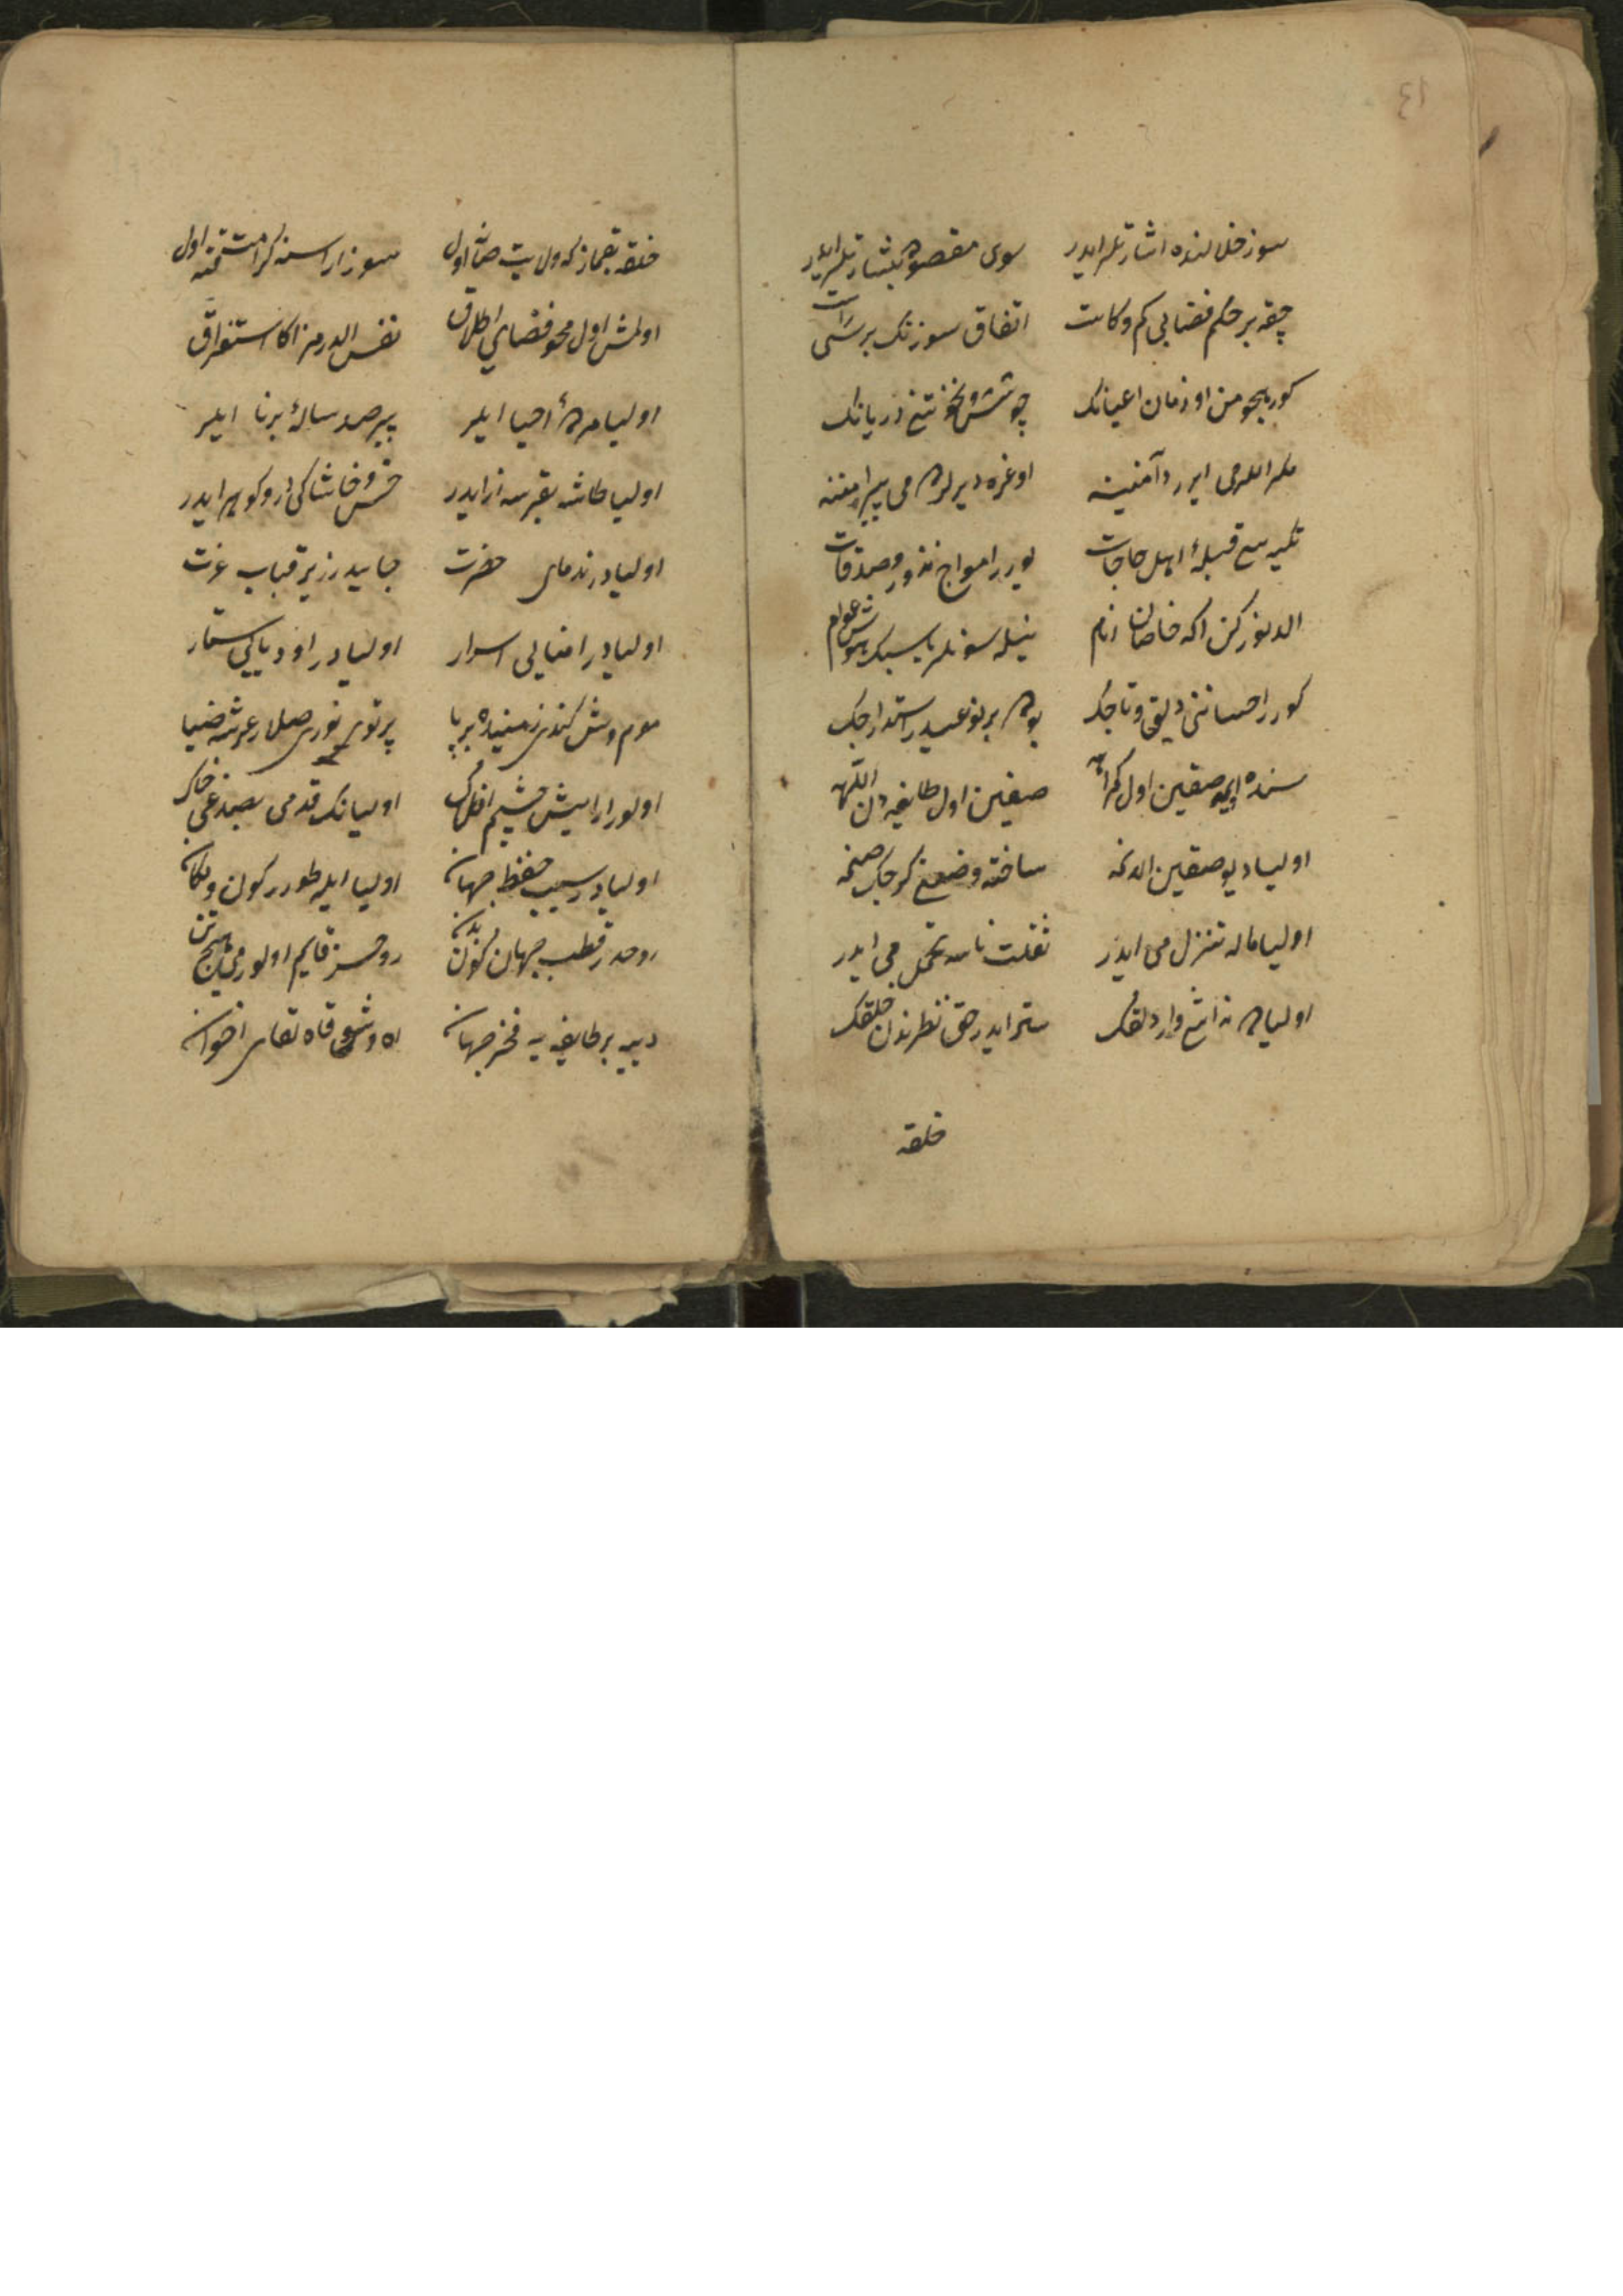 سوز خللنده اشارتلر ایدر سوی مقصوده بشارتلر ایدر
چقه بر حکم قضایی کم وکاست اتفاق سوزنک برسی راست
کور هجومن او زمان اعیانک جوشش نخوتنی دریانک
مکر اللهمی ایرر دآمننه اوغره دیرلرمی پیرامننه
تکیه سی قبلهٔ اهل حاجات یورر امواج نذور وصدقات
الدنور کن اکه خاصان انام نیله سونلر یا سبک هوش عوام
کورر احسانی دلق وتاجک بوده بر نوعیدر استدراجک
سنده وار ایمه صقین اول کمراه صقین اول طایفه دن الله
اولیا دیو صقین الدنمه ساخته وضعنی کرچک صنمه
اولیا ماله تنزل می ایدر ثقلت ناسه تحمل می ایدر
اولیاده نه اشی وار دلقک ستر ایدر حق نظرندن خلقک
خلقه
خلقه بقماز که ولایت صاته اول سوز اراسنه کرامت قته اول
اولمش اول محو فضای اطلاق نفس الدرمز اکا استغراق
اولیا مردهٔ احیا ایلر پیر صد سالهٔ برنا ایلر
اولیا طاشه بقرسه زر ایدر خس وخاشاکی در وکوهر ایدر
اولیادر ندمای حضرت جایدر زیر قباب عزت
اولیادر امنایی اسرار اولیادر اودبایی ستار
موم وش کندی زمینده بر پا پرتوی نوری صلار عرشه ضیا
اولور ارایش چشم افلاک اولیانک قدمی بصدغی خاک
اولیادر سبب حفظ جهان اولیا ایله طورر کون ومکان
روحدر قطب جهان کون بدن روحسز قایم اولورمی هیچ تن
دییه بر طایفه یه فخر جهان اه وشوقاه لقای اخوان